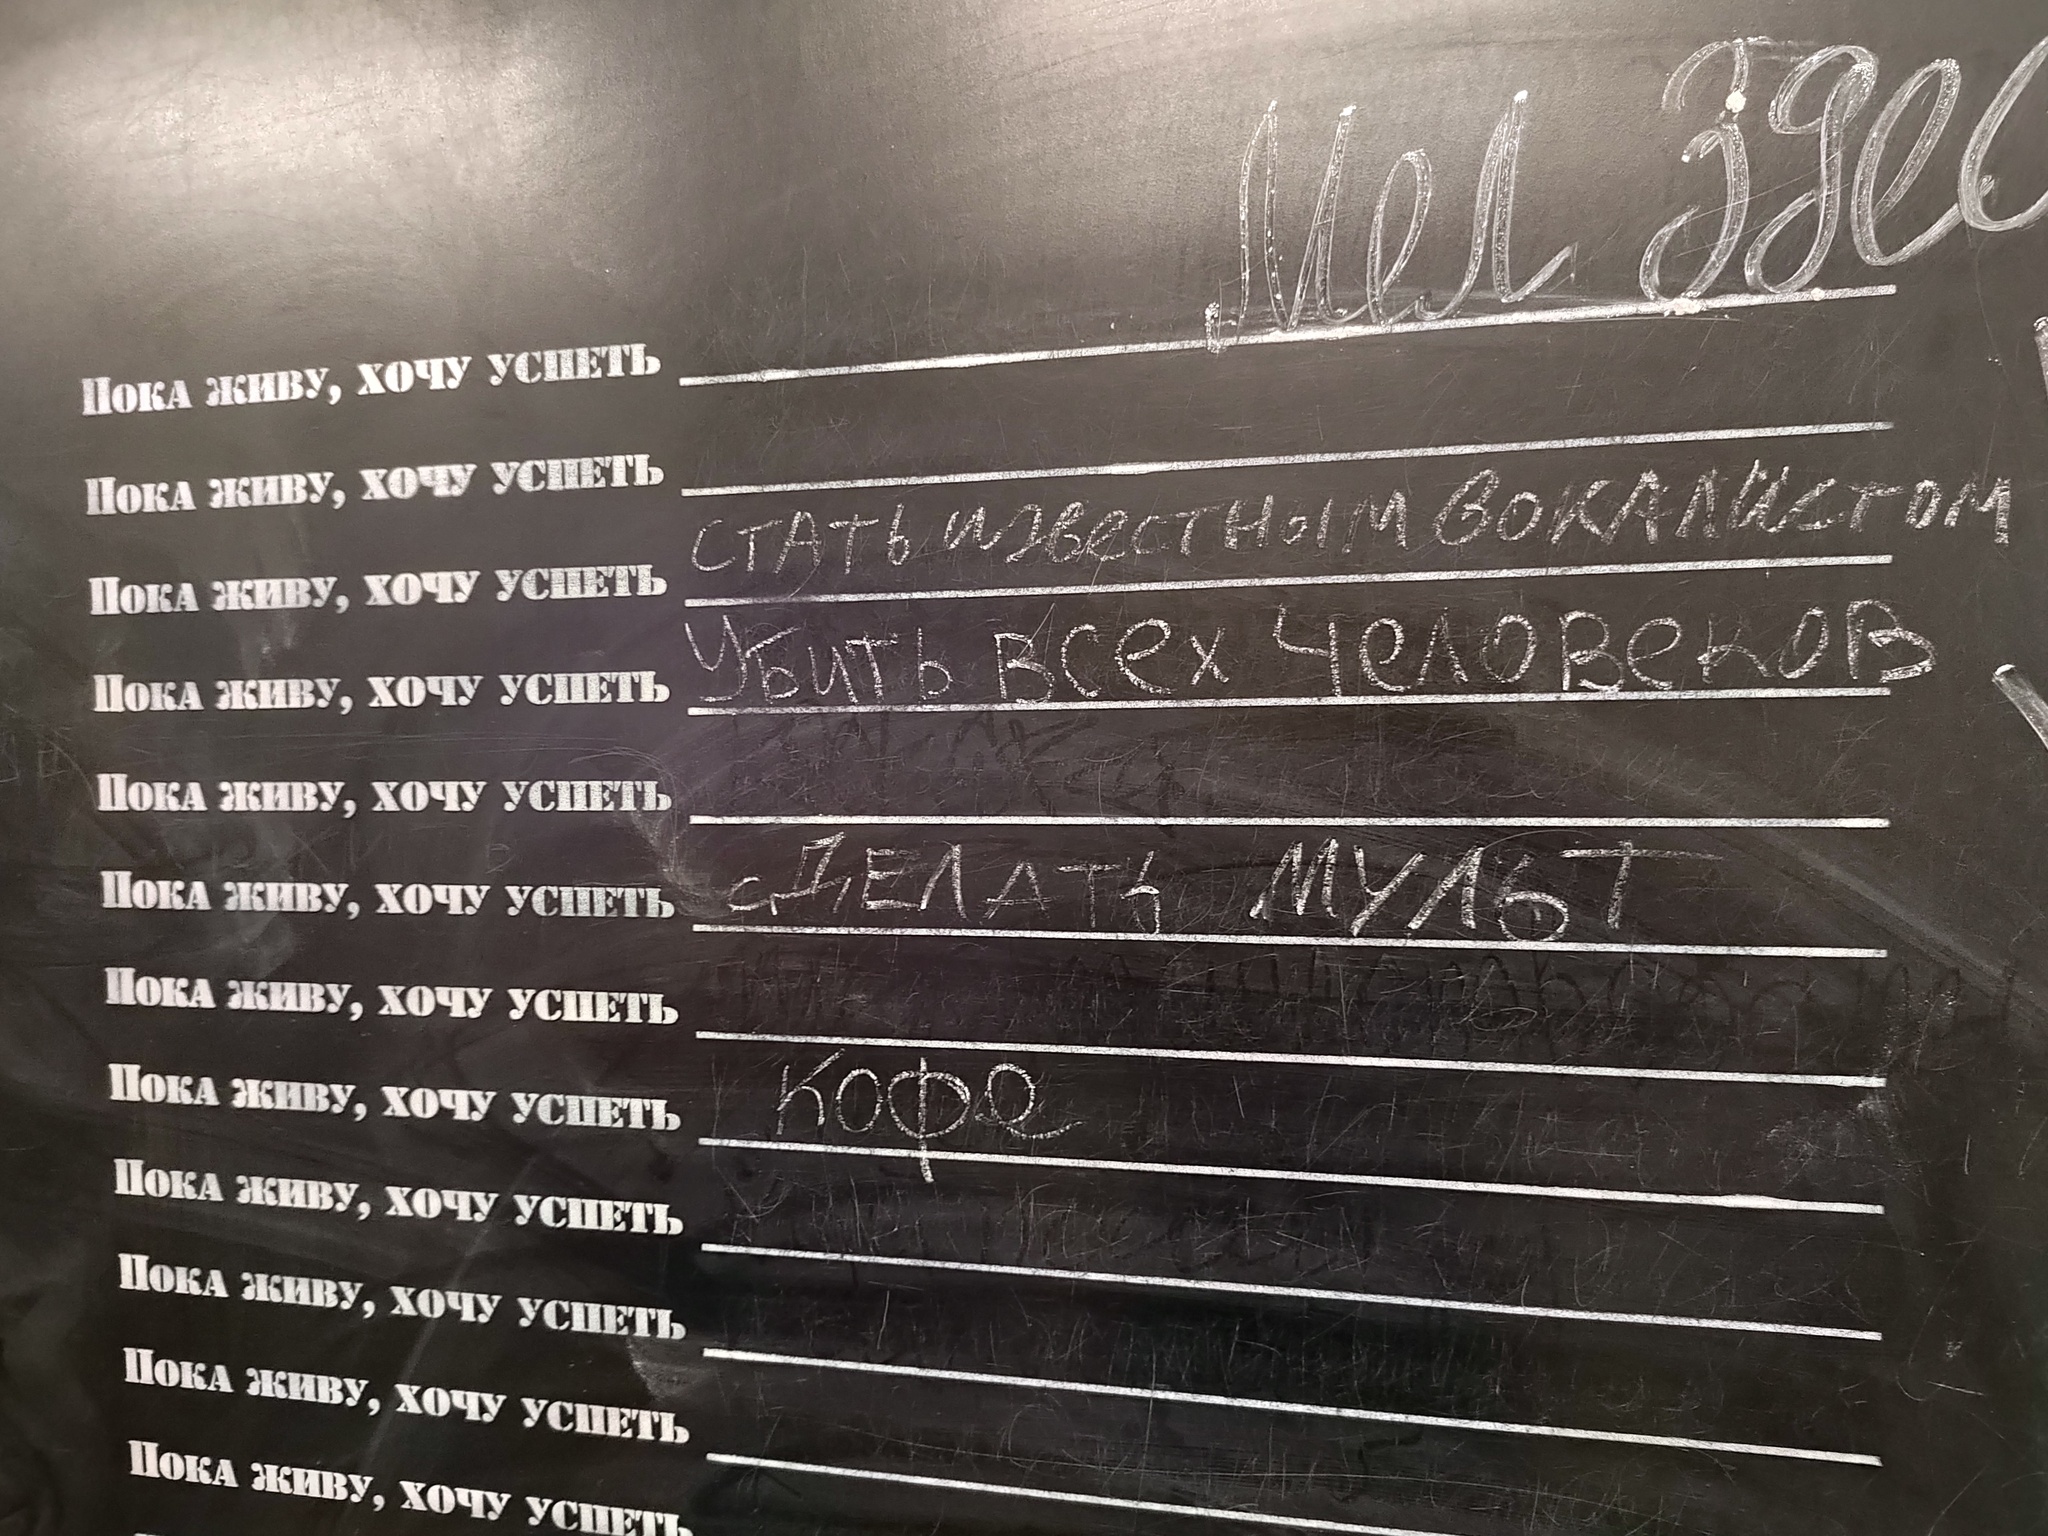 Мел здес
Пока живу, хочу успеть
Пока живу, хочу успеть
Пока живу, хочу успеть стать известным вокалистом
Пока живу, хочу успеть Убить всех человеков
Пока живу, хочу успеть
Пока живу, хочу успеть сДЕЛАТЬ МУЛЬТ
Пока живу, хочу успеть
Пока живу, хочу успеть кофе
Пока живу, хочу успеть
Пока живу, хочу успеть
Пока живу, хочу успеть
Пока живу, хочу успеть